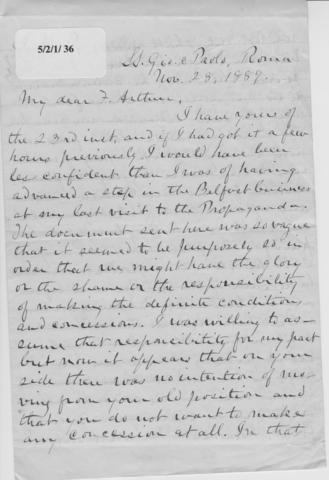 5/2/1/ 36
SS. Gio. e Paolo, Roma
Nov. 28, 1889.
My dear F. Arthur,
I have yours of
the 23rd inst. and if I had got it a few
hours previously I would have been
les confident than I was of having
advanced a step in the Belfast business
at my last visit to the Propaganda.
The document sent here was so vague
that it seemed to be purposely so in
order that we might have the glory
or the shame or the responsibility
of making the definite conditions
and concessions. I was willing to as-
sume that responsibility for my part
but now it appears that on your
side there was no intention of mo-
ving from your old position and
that you do not want to make
any concession at all. In that